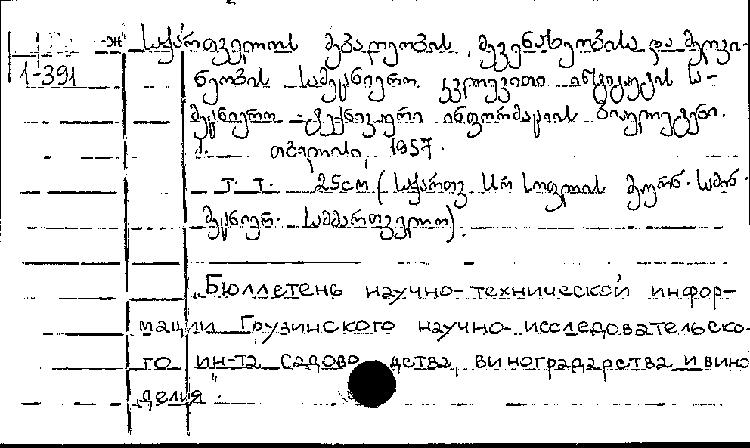 -ж საქართველოს მებაღეობის, მევენახეობისა და მეღვი-
1-391 ნეობის სამეცნიერო კვლევითი ინსტიტუტის ს-
მეცნიერო-ტექნიკური ინფორმაციის ბიულეტენი.
თბილისი, 1957.
25см (საქართვ. სსრ სოფლის მეურნ. სამინ.
მეცნიერ. სამმართველო).
"Бюллетень научно-технической инфор-
мации Грузинского научно-исследовательско-
го ин-та садово дства, виноградарства и вино
делия".